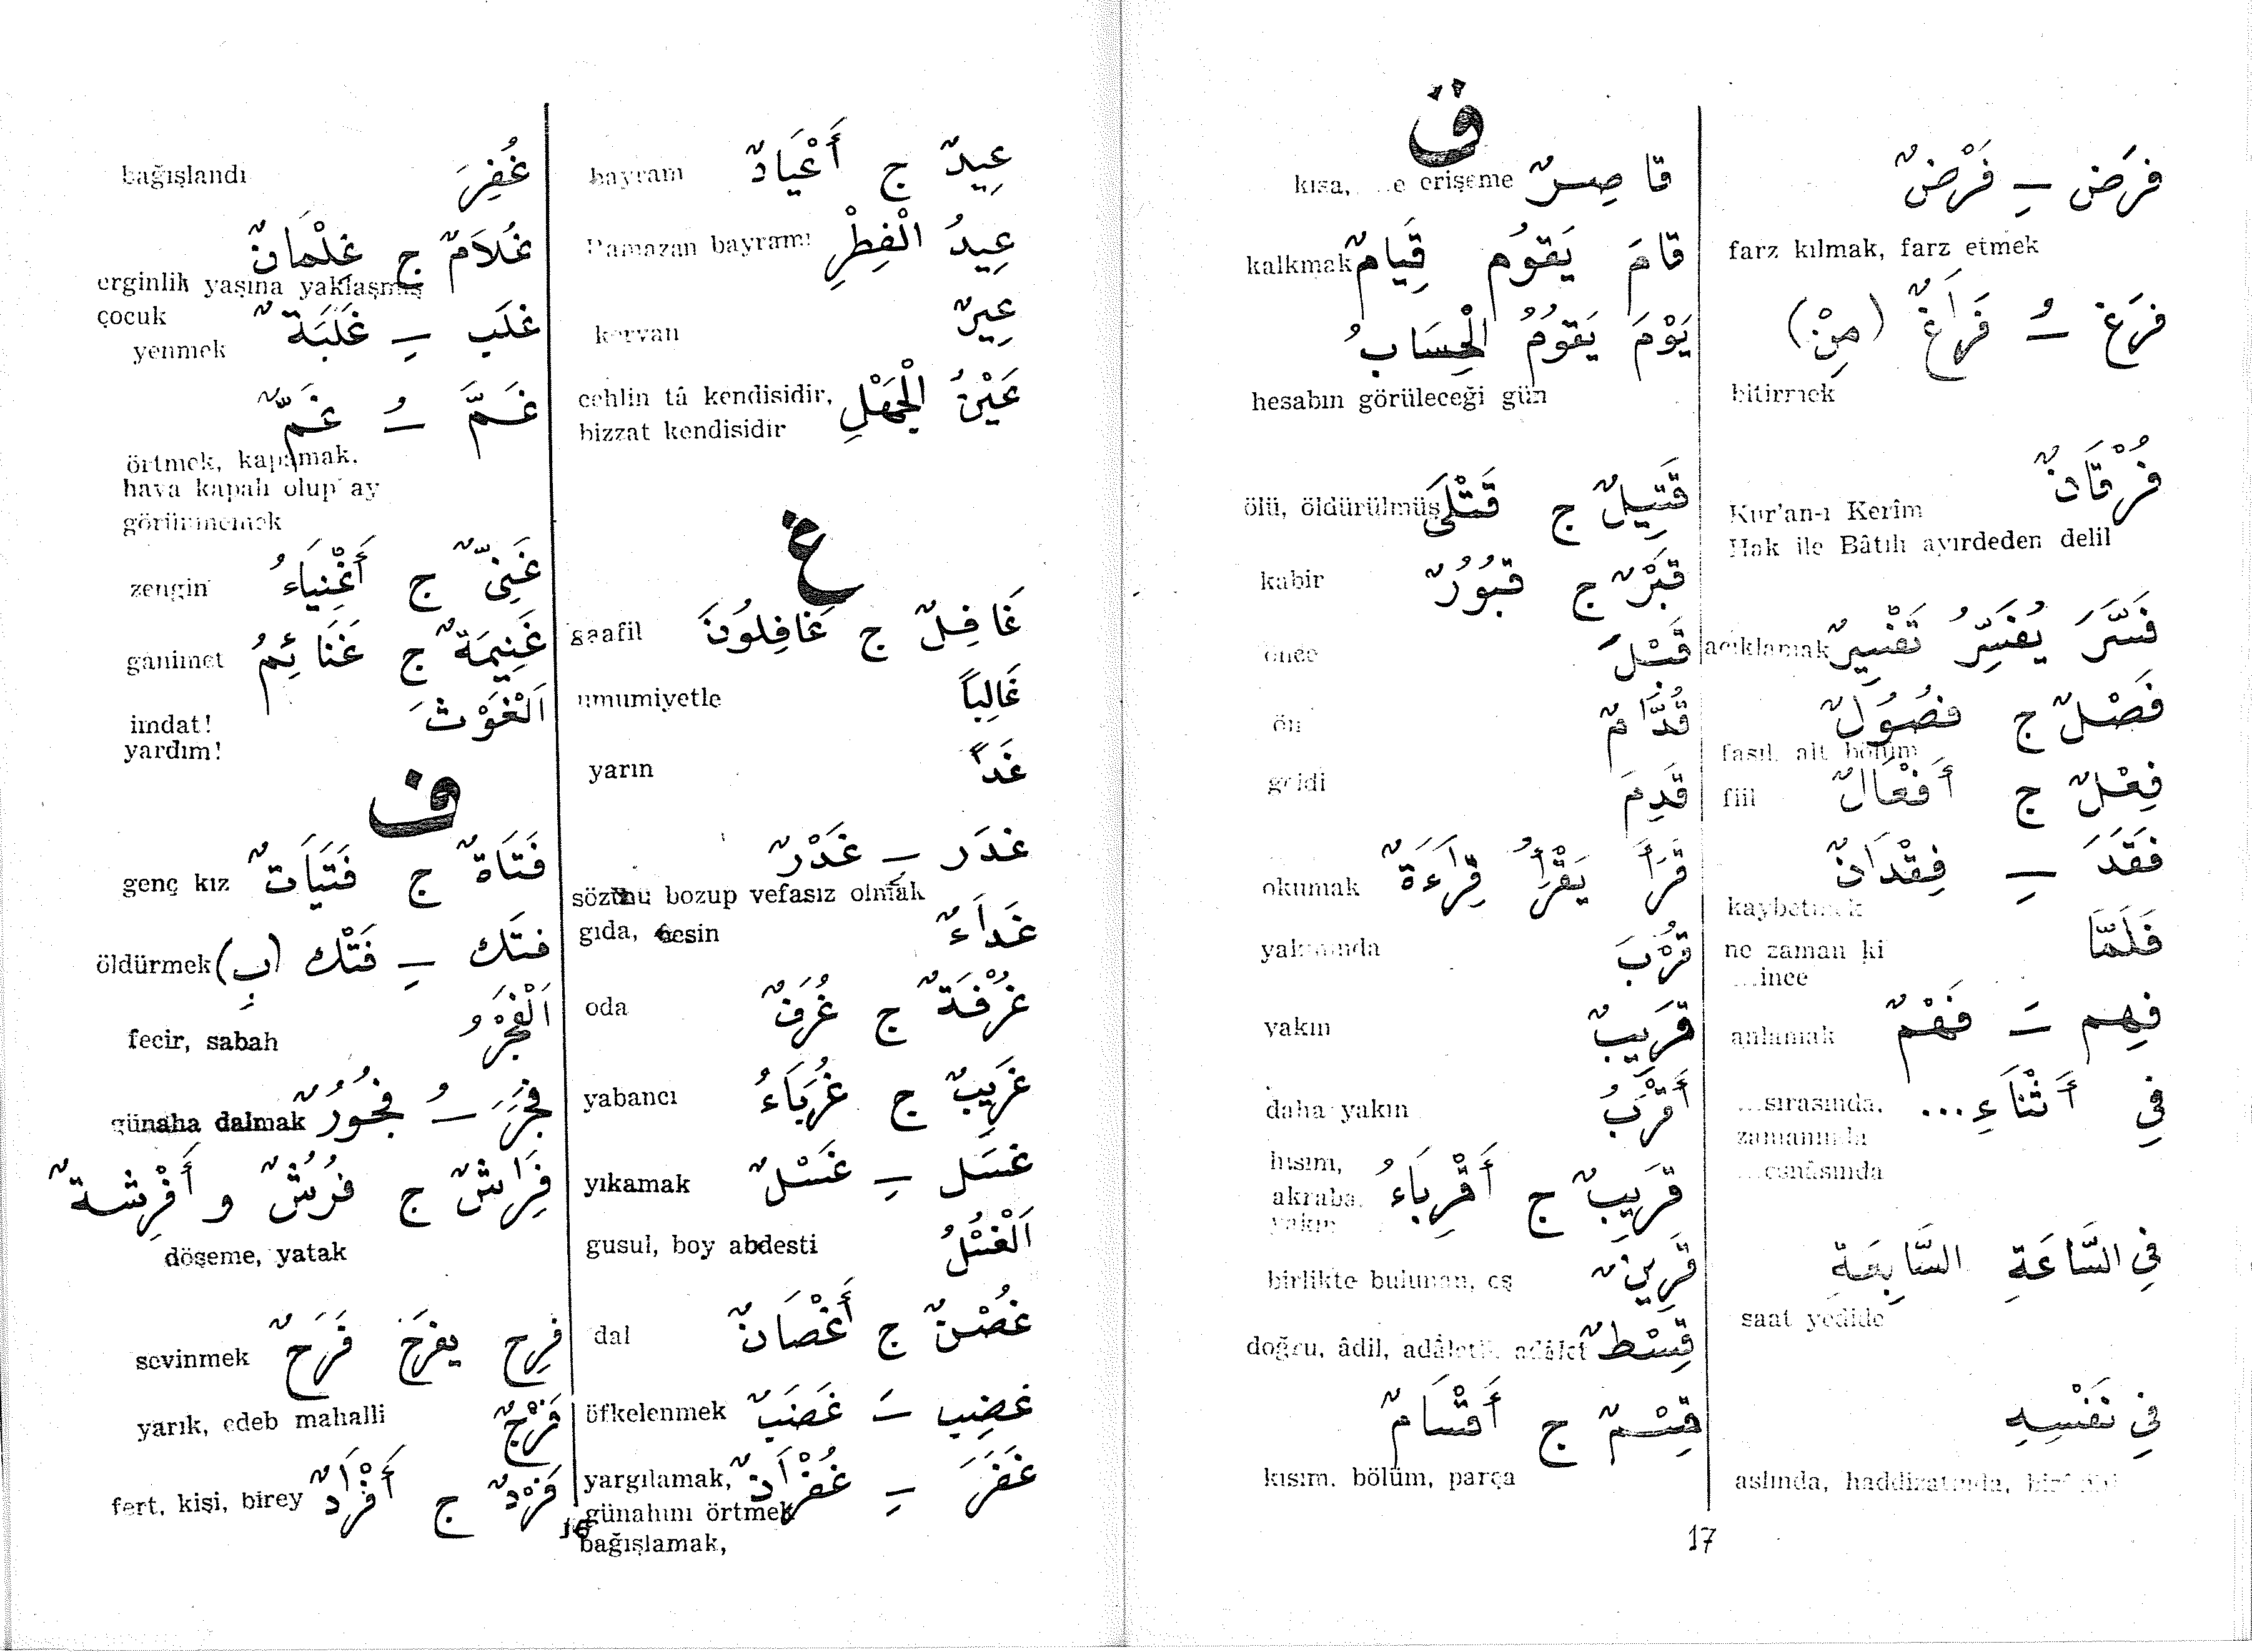 عِيدٌ ج أَعْيَادٌ bayram
عِيدُ الْفِطْرِ Ramazan bayramı
عِيرٌ kervan
عَيْنُ الْجَهْلِ cehlin tâ kendisidir,
bizzat kendisidir
غ
غَافِلٌ ج غَافِلُونَ gaafil
غَالِباً umumiyetle
غَداً yarın
غدَر ـِ غَدْرٌ
sözünü bozup vefasız olmak
غَدَاءٌ gıda, besin
غُرْفَةٌ ج غُرَفٌ oda
غَرِيبٌ ج غُرَبَاءُ yabancı
غسَل ـِ غَسْلٌ yıkamak
اَلْغُسْلُ gusul, boy abdesti
غُصْنٌ ج أَغْصَانٌ dal
غضِب ـَ غَضَبٌ öfkelenmek
غَفَرَ ـِ غُفْرَانٌ yargılamak,
günahını örtmek
bağışlamak,
غُفِرَ bağışlandı
غُلاَمٌ ج غِلْمَانٌ
erginlik yaşına yaklaşmış
çocuk
غلَب ـِ غَلَبَةٌ yenmek
غَمَّ ـُ غَمٌّ
örtmek, kapamak,
hava kapalı olup ay
görünmemek
غَنِىٌّ ج أَغْنِيَاءُ zengin
غَنِيمَةٌ ج غَنَائِمُ ganimet
اَلْغَوْثَ imdat!
yardım!
ف
فَتَاةٌ ج فَتَيَاتٌ genç kız
فتَك ـِ فَتْك (بِ) öldürmek
اَلْفَجْرُ fecir, sabah
فجَرَ ـُ فُجُورٌ günaha dalmak
فِرَاشٌ ج فُرُشٌ و أَفْرِشةٌ
döşeme, yatak
فرِح يفرَح فَرَحٌ sevinmek
فَرْجٌ yarık, edeb mahalli
فَرْدٌ ج أَفْرَادٌ fert, kişi, birey
16
فرَض ـِ فَرْضٌ
farz kılmak, farz etmek
فرَغ ـُ فَرَاغٌ (مِنْ)
bitirmek
فُرْقَانٌ
Kur'an-ı Kerîm
Hak ile Bâtılı ayırdeden delil
فَسَّرَ يُفَسِّرُ تَفْسِيرٌ açıklamak
فَصْلٌ ج فصُولٌ
fasıl, ait bölüm
فِعْلٌ ج أَفْعَالٌ fiil
فَقَدَ ـِ فِقْدَانٌ
kaybetmek
فَلَمَّا ne zaman ki
...ince
فهِم ـَ فَهْمٌ anlamak
فِي أَثْنَاءِ ... ...sırasında,
zamanında
...esnâsında
فِي السَّاعَةِ السَّابِعَةِ
saat yedide
فِي نَفْسِهِ
aslında, haddizatında,
ق
قاصِرٌ kısa, erişeme
قامَ يَقوُم قِيَامٌ kalkmak
يَوْمَ يَقوُمُ الْحِسَابُ
hesabın görüleceği gün
قَتِيلٌ ج قَتْلَى ölü, öldürülmüş
قَبْرٌ ج قبُورٌ kabir
قَبْلَ önce
قُدَّامٌ ön
قَدِمَ geldi
قَرَأَ يَقْرَأُ قِرَاءَةٌ okumak
قُرْبَ yakınında
قَرِيبٌ yakın
أَقْرَبُ daha yakın
قَرِيبٌ ج أَقْرِبَاءُ hısım,
akraba,
yakın
قَرِينٌ birlikte bulunan, eş
قِسْطٌ doğru, âdil, adâletli, adâlet
قِسْمٌ ج أَقسَامٌ
kısım, bölüm, parça
17